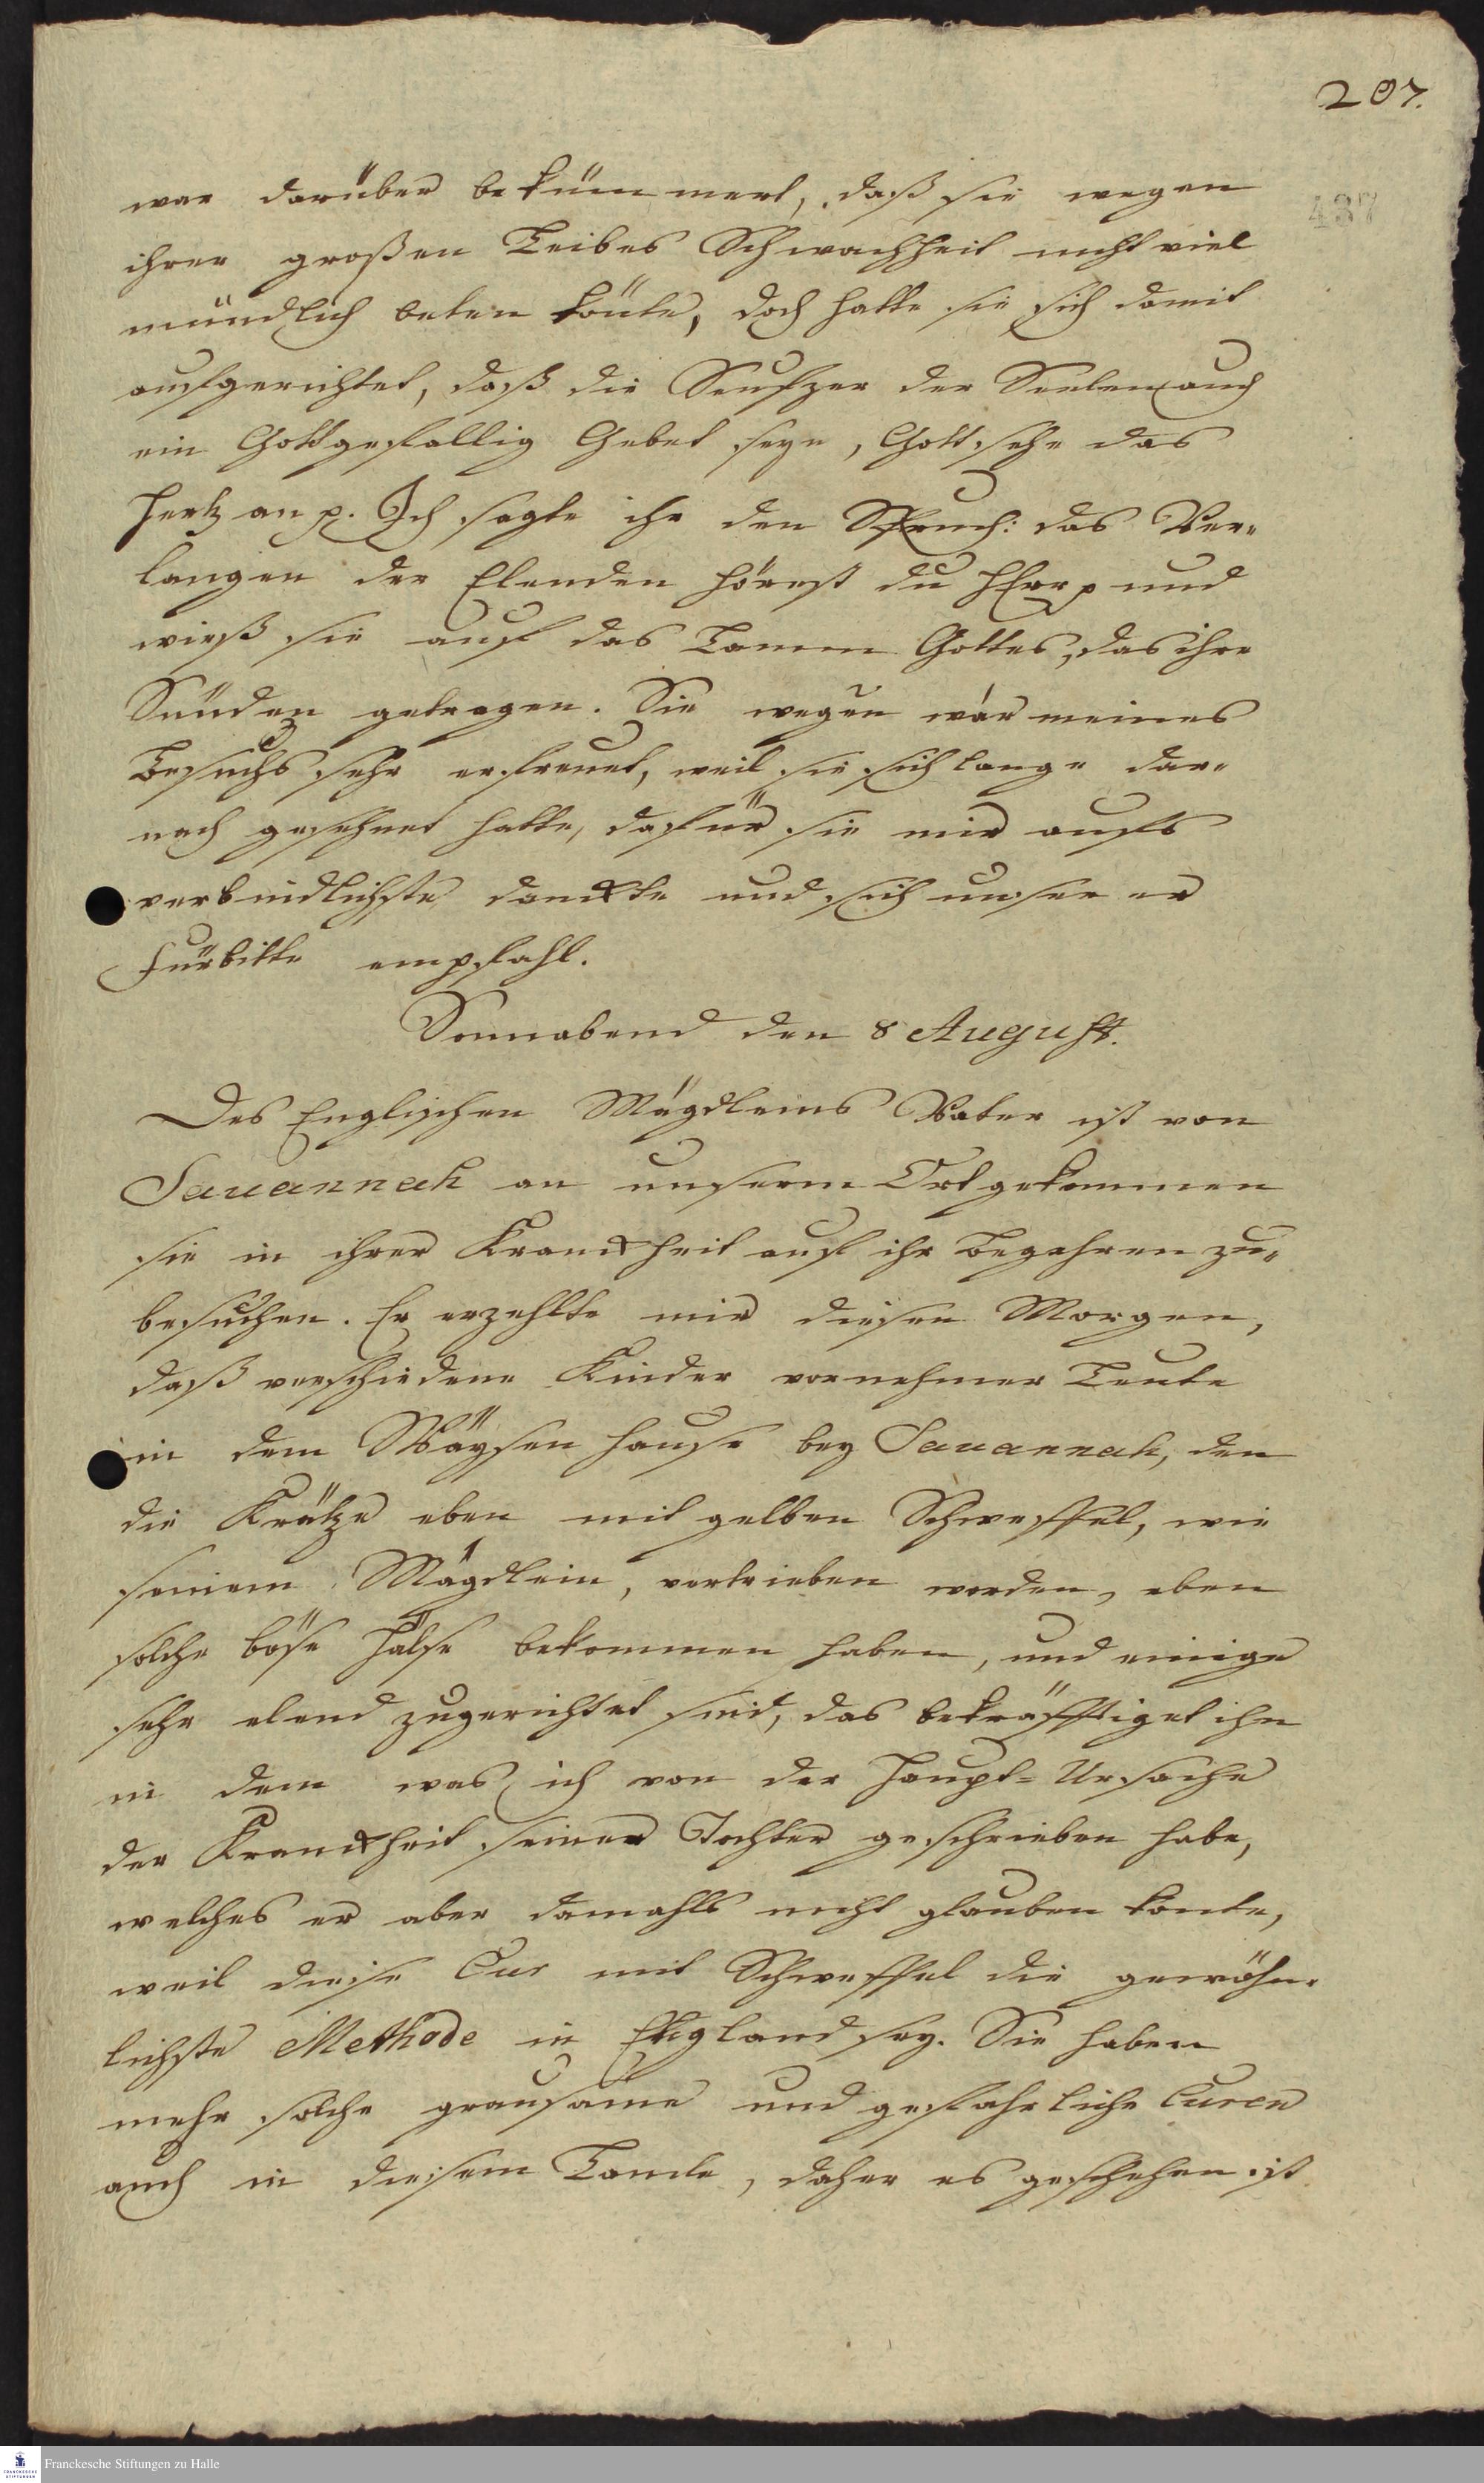 207.
437
war darüber bekümmert, daß sie wegen
ihrer großen Leibes Schwachheit nicht viel
mündlich beten könte, doch hatte sie sich damit
aufgerichtet, daß die Seufzer der Seelen auch
ein Gottgefällig Gebet seyn, Gott sehe das
Hertz an p. Ich sagte ihr den Spruch: das Ver„
langen der Elenden hörest du HErr p und
wieß sie auf das Lamm Gottes, das ihre
Sünden getragen. Sie wegen war meines
Besuchs sehr erfreuet, weil sie sich lange dar„
nach gesehnet hatte, dafür sie mir aufs
verbindlichste danckte und sich unserer
Fürbitte empfahl.
Sonnabend den 8 August.
Des Englischen Mägdleins Vater ist von
Savannah an unserm Ort gekommen
sie in ihrer Kranckheit auf ihr Begehren zu„
besuchen. Er erzehlte mir diesen Morgen,
daß verschiedene Kinder vornehmer Leute
in dem Wäysenhause bey Savannah, den
die Krätze eben mit gelben Schweffel, wie
seinem Mägdlein, vertrieben worden, eben
solche böse Hälse bekommen haben, und einige
sehr elend zugerichtet sind, das bekräfftiget ihn
in dem was ich von der Haupt-Ursache
der Kranckheit seiner Tochter geschrieben habe,
welches er aber damahls nicht glauben konte,
weil diese Cur mit Schweffel die gewöhn„
lichste Methode in England sey. Sie haben
mehr solche grausame und gefährliche Curen
auch in diesem Lande, daher es geschehen ist
Franckesche Stiftungen zu Halle